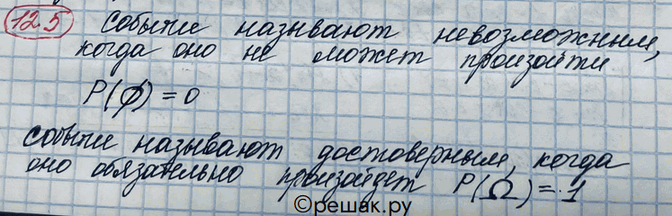 12.5 событие называют невозможным,
когда оно не может произойти
P(∅) = 0
событие называют достоверным, когда
оно обязательно произойдет P(Ω) = 1
©решак.ру